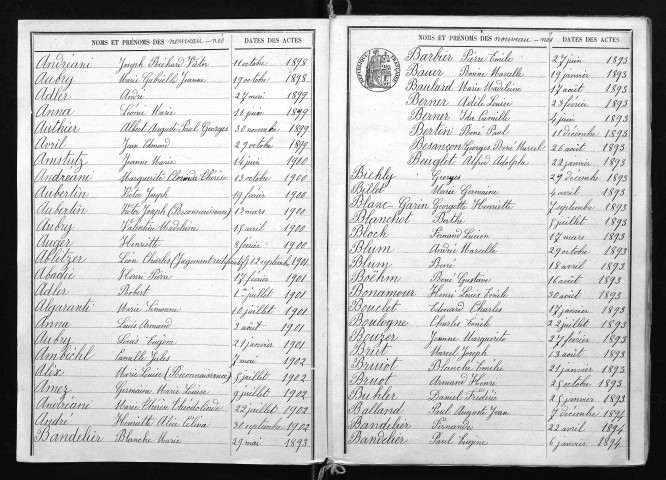 NOMS ET PRÉNOMS DES nouveau-nés DATES DES ACTES
Andréani Joseph Richard Victor 11 octobre 1898
Aubry Marie Gabrielle Jeanne 19 octobre 1898
Adler André 27 mai 1899
Anna Léonie Marie 11 juin 1899
Authier Albert Auguste Paul Georges 30 novembre 1899
Avril Jean Edmond 29 octobre 1899
Amstutz Jeanne Marie 14 juin 1900
Andréani Marguerite Thérèse 13 octobre 1900
Aubertin Victor Joseph 19 février 1900
Aubertin Victor Joseph (Reconnaissance) 13 mars 1900
Aubry Valentine Madeleine 15 avril 1900
Auger Henriette 8 février 1900
Léon Charles (Jugement rectificatif) 12 septembre 1901
Abadie Henri Pierre 17 février 1901
Adler Robert 1er juillet 1901
Algaranti Marie Simonne 10 juillet 1901
Anna Louis Armand 3 août 1901
Aubry Louis Eugène 21 janvier 1901
Ambiehl Camille Jules 7 mai 1902
Alix Marie Louise (Reconnaissance) 5 juillet 1902
Amez Germaine Marie Louise 9 juillet 1902
Andréani Marie 22 juillet 1902
André Henriette Alice Célina 30 septembre 1902
Bandelier Blanche Marie 29 mai 1893
NOMS ET PRÉNOMS DES nouveau-nés DATES DES ACTES
Barbier Pierre Emile 27 juin 1893
Bauer Bonne Marcelle 19 janvier 1893
Baulard Marie Madeleine 17 août 1893
Berner Adèle Louise 23 février 1893
Berner Ida Camille 4 juin 1893
Bertin René Paul 11 décembre 1893
Besançon Georges René Marcel 26 août 1893
Beuglet Alfred Adolphe 22 janvier 1893
Bickly Georges 29 décembre 1893
Billet Marie Germaine 4 avril 1893
Blanc-Garin Georgette Henriette 7 septembre 1893
Blanchot Berthe 5 juillet 1893
Block Fernand Lucien 17 mars 1893
Blum André Marcelle 29 octobre 1893
Blum René 18 avril 1893
Boëhm René Gustave 16 août 1893
Bonamour Henri Louis Emile 30 août 1893
Bouclet Edouard Charles 17 janvier 1893
Boulogne Charles Emile 22 juillet 1893
Bouzer Jeanne Marguerite 27 février 1893
Briet Marcel Joseph 13 août 1893
Bruiot Blanche Emilie 21 janvier 1893
Bruot Armand Henri 25 octobre 1893
Buhler Daniel Frédéric 25 janvier 1893
Balland Paul Auguste Jean 7 décembre 1894
Bandelier Fernande 22 avril 1894
Bandelier Paul Eugène 6 janvier 1894